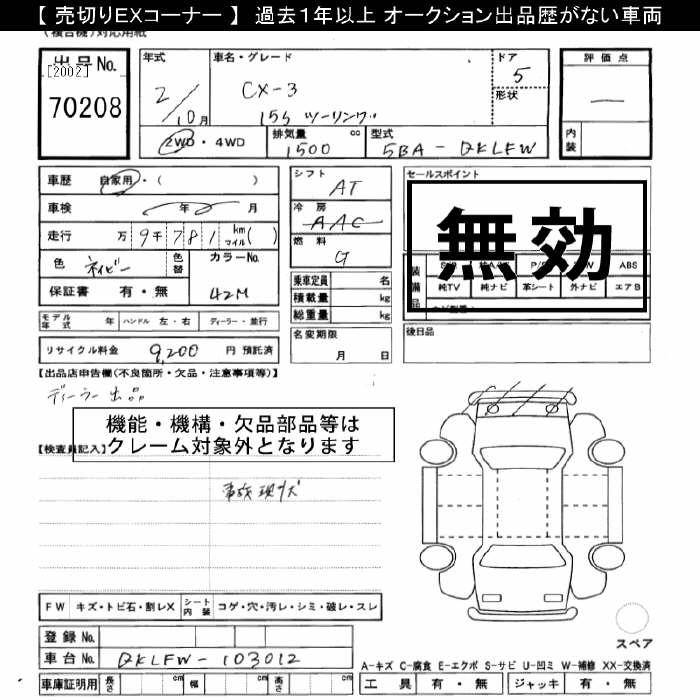 【 売切りEXコーナー 】 過去1年以上 オークション出品歴がない車両
(複合機)対応用紙
出品No. [2002] 70208
年式 2/10月
車名・グレード CX-3 15S ツーリング
ドア 5
形状
2WD・4WD
排気量 1500 cc
型式 5BA-DKLFW
評価点 —
内装
車歴 自家用・( )
車検 年 月
走行 万 9千781 km マイル ( )
色 ネイビー 色替
カラーNo. 42M
保証書 有・無
シフト AT
冷房 AAC
燃料 G
乗車定員 名
積載量 kg
総重量 kg
セールスポイント
無効
ABS
純TV 純ナビ 革シート 外ナビ エアB
モデル年式 年 ハンドル 左・右 ディーラー・並行
名変期限 月 日
後日品
リサイクル料金 9,200 円 預託済
【出品店申告欄(不良箇所・欠品・注意事項等)】
ディーラー出品
機能・機構・欠品部品等は
クレーム対象外となります
【検査員記入】
事故現状
FW キズ・トビ石・割レX シート内装 コゲ・穴・汚レ・シミ・破レ・スレ
登録No.
車台No. DKLFW-103012
スペア
A-キズ C-腐食 E-エクボ S-サビ U-凹ミ W-補修 XX-交換済
車庫証明用 長さ cm 幅 cm 高さ cm
工具 有・無 ジャッキ 有・無